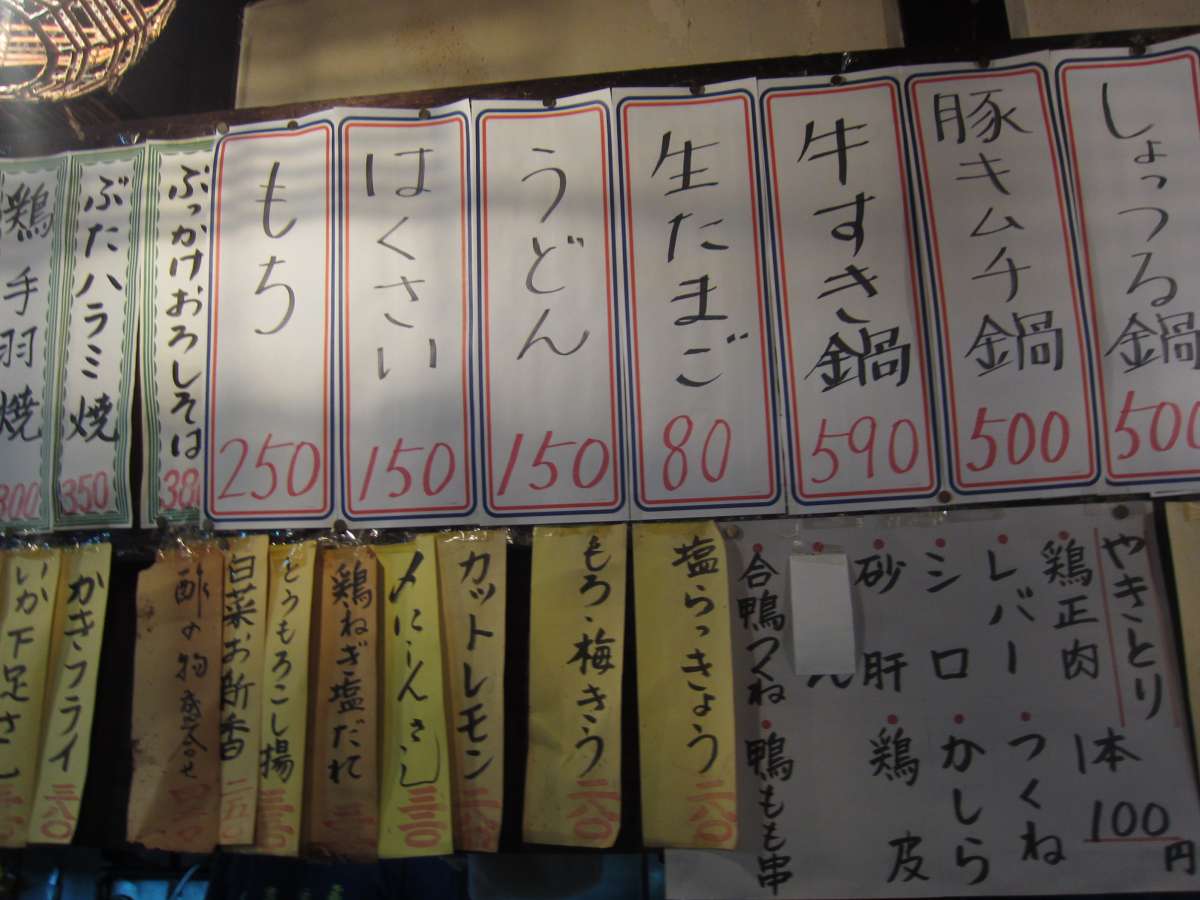 しょっつる鍋
500
豚キムチ鍋
500
牛すき鍋
590
生たまご
80
うどん
150
はくさい
150
もち
250
ぶっかけおろしそば
38
ぶたハラミ焼
350
鶏手羽焼
300
やきとり
1本
100
円
鶏正肉
レバー
つくね
シロ
かしら
砂肝
鶏皮
ん
合鴨つくね
鴨もも串
塩らっきょう
二八〇
もろ梅きう
二八〇
カットレモン
〆にしんさし
三三〇
鶏ねぎ塩だれ
とうもろこし揚
三三〇
白菜お新香
二五〇
酢の物盛合せ
かきフライ
いか下足さし